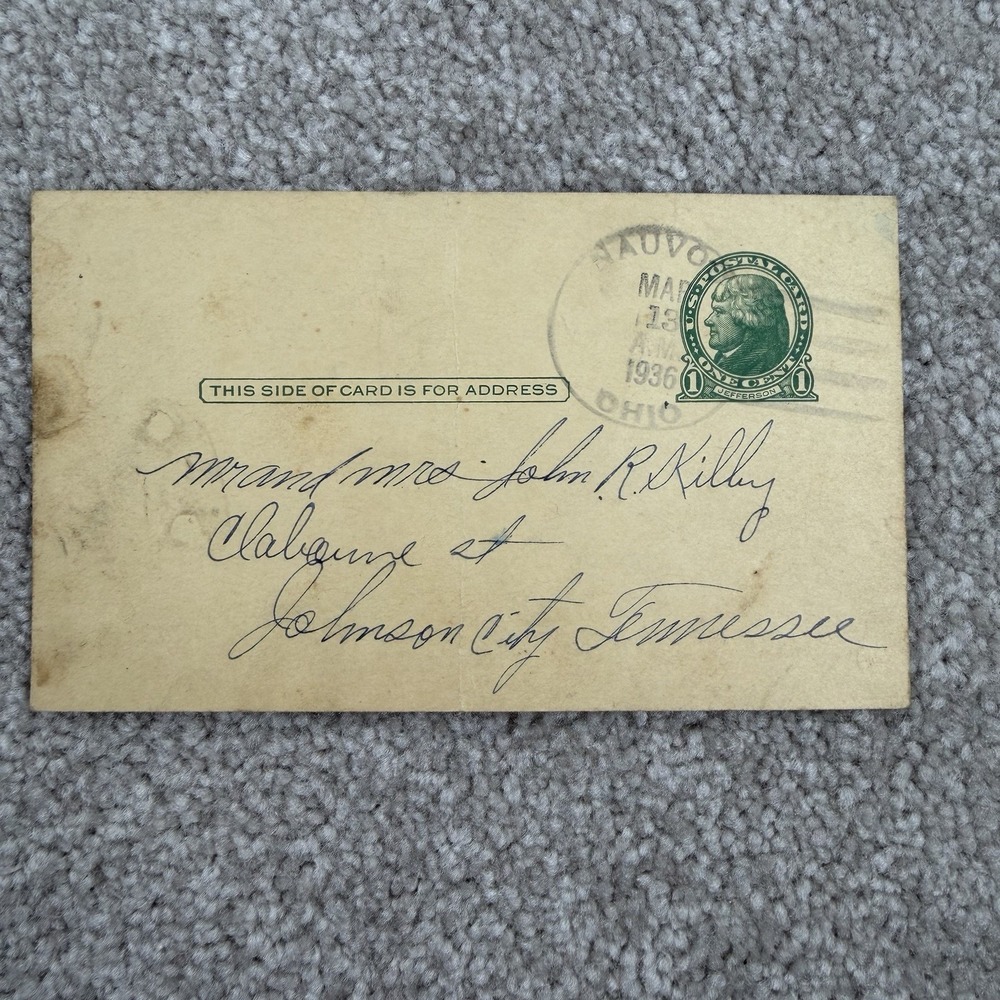 NAUVOO
MAR
13
A.M.
1936
OHIO
U.S. POSTAL CARD
ONE CENT
1 1
JEFFERSON
THIS SIDE OF CARD IS FOR ADDRESS
mr and mrs John R. Kilby
Clabourne st
Johnson City Tennessee